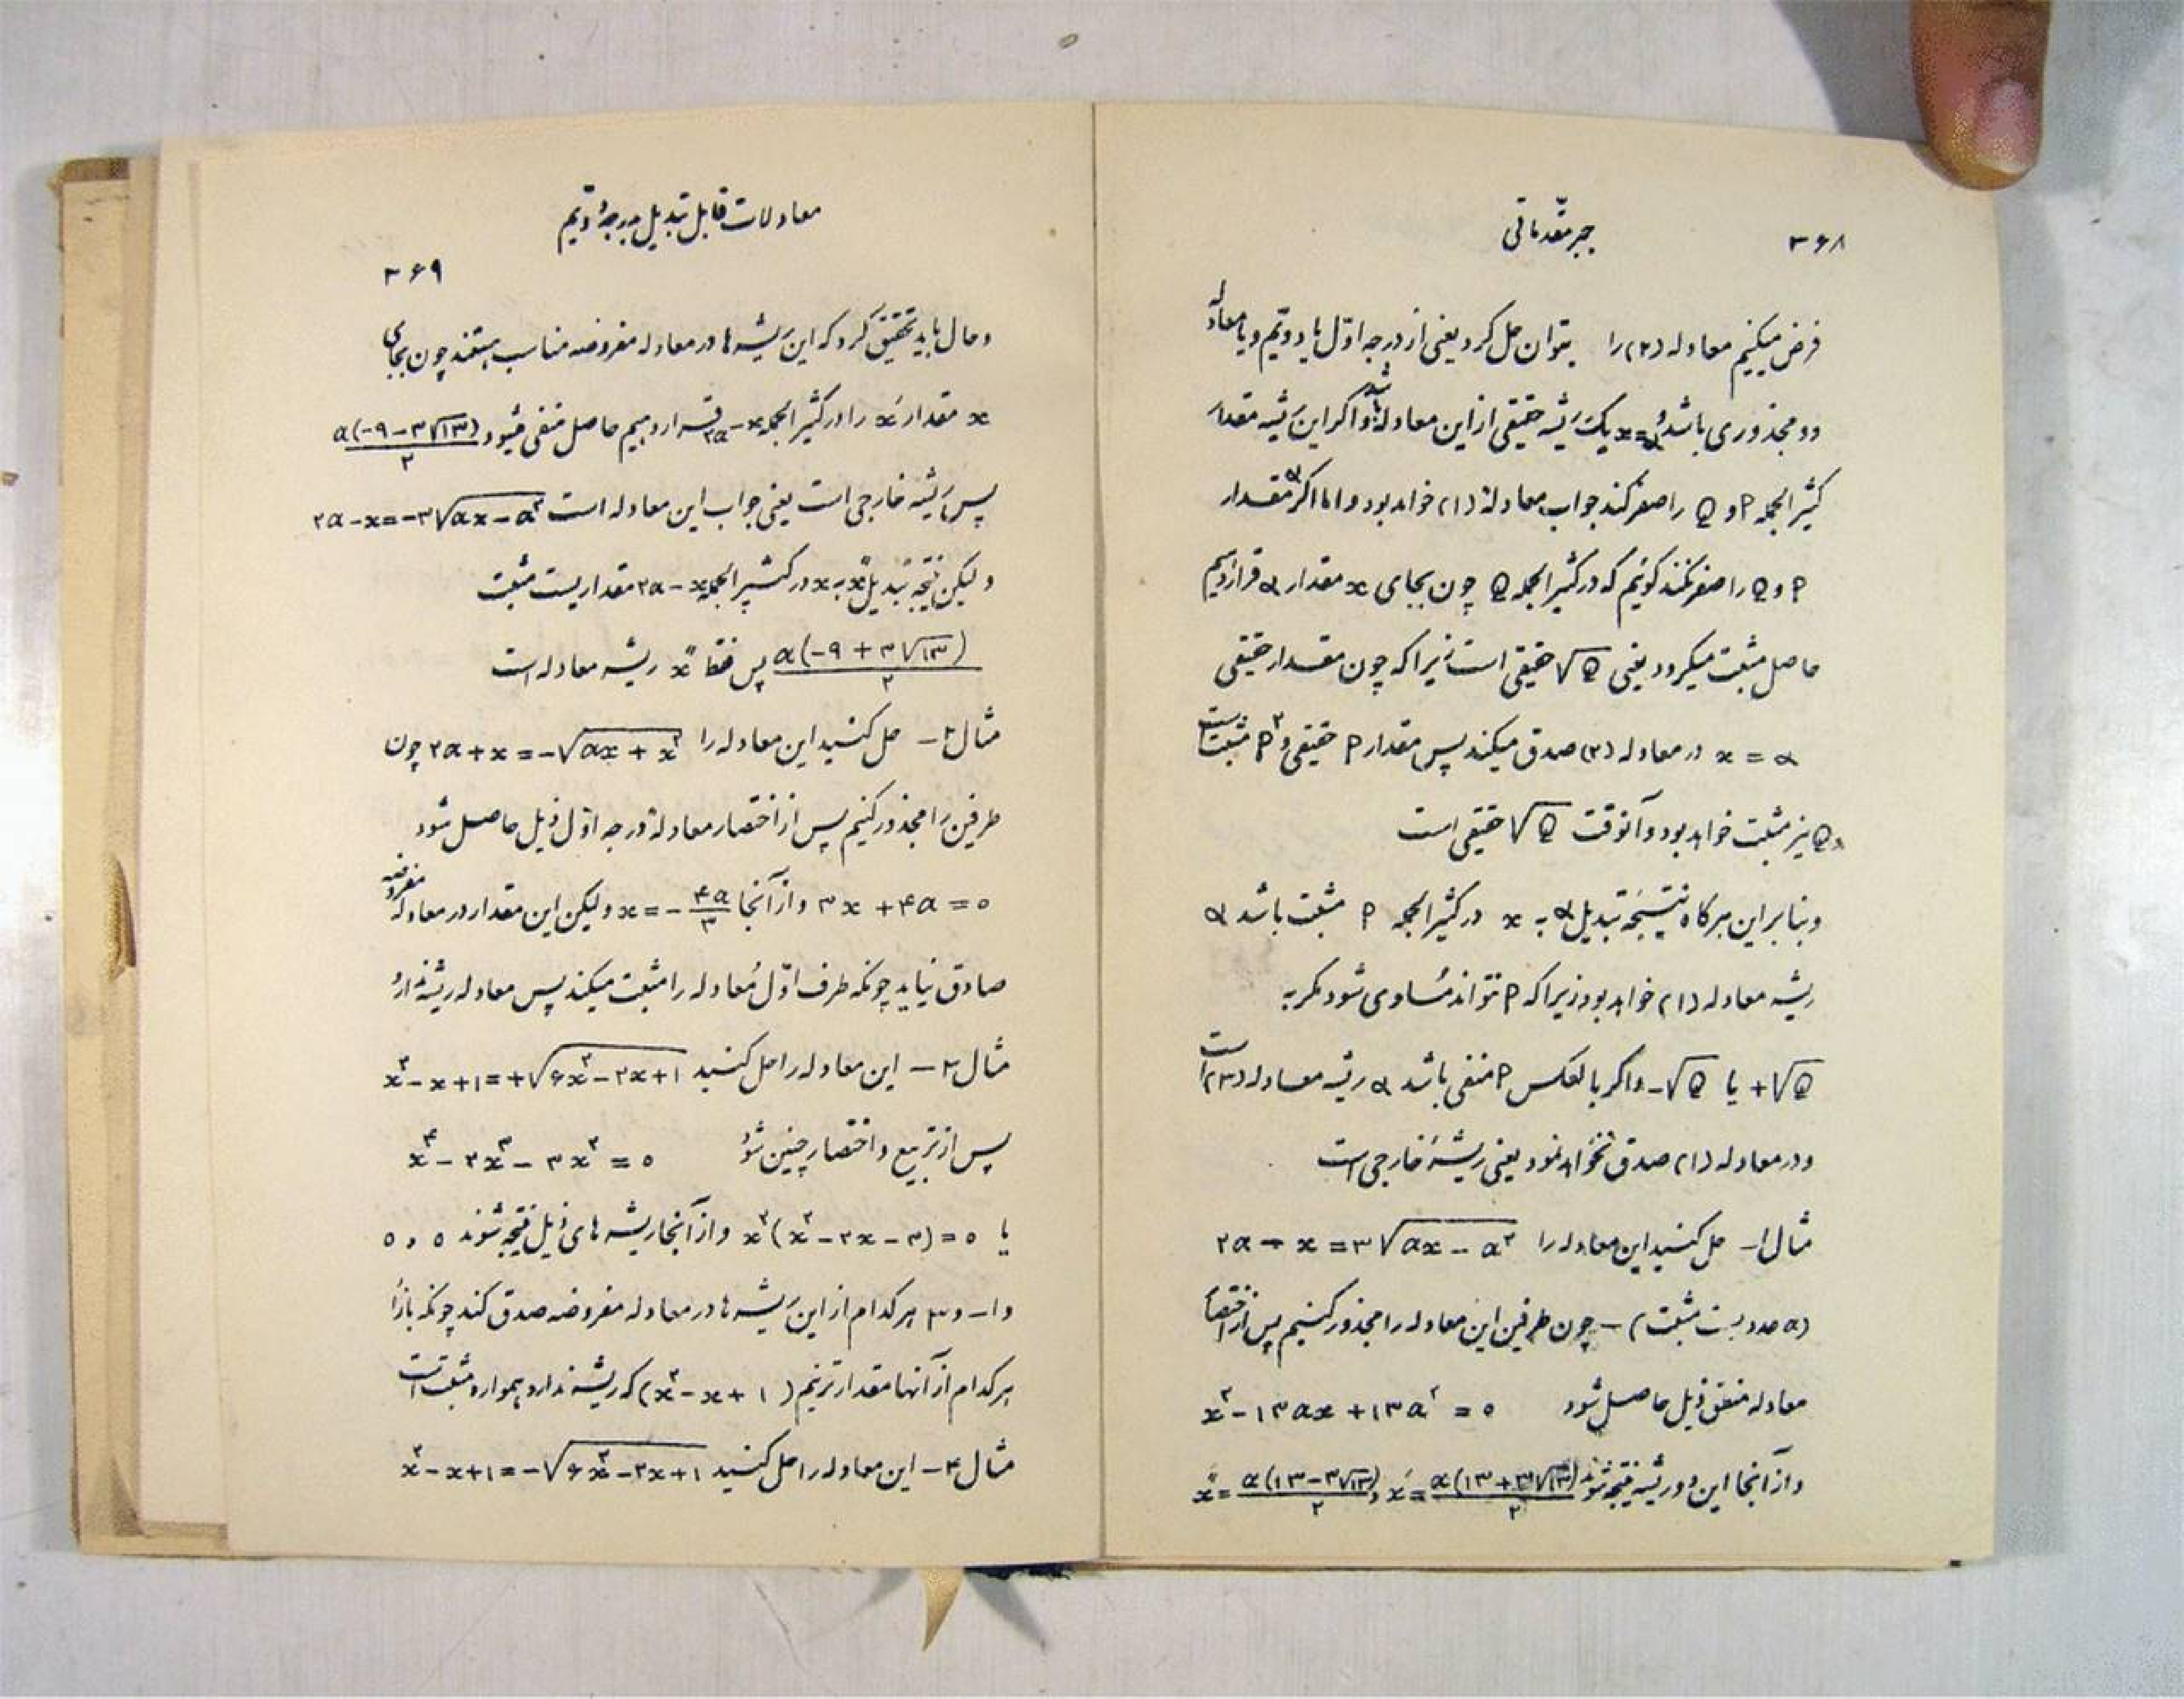 ۳۶۸
جبر مقدماتی
فرض میکنیم معادله (۲) را بتوان حل کرد یعنی از درجه اوّل یا دوّیم و یا معادلهٔ
دو مجذوری باشد و x=α یک ریشه حقیقی از این معادله باشد و اگر این ریشه مقدار
کثیرالجمله P و Q را صفر کند جواب معادلهٔ (۱) خواهد بود و اما اگر α مقدار
P و Q را صفر نکند گوئیم که در کثیرالجمله Q چون بجای x مقدار α قرار دهیم
حاصل مثبت میگردد یعنی √Q حقیقی است زیرا که چون مقدار حقیقی
x = α در معادله (۲) صدق میکند پس مقدار P حقیقی و P² مثبت است
و Q نیز مثبت خواهد بود و آنوقت √Q حقیقی است
و بنا بر این هرگاه نتیجهٔ تبدیل α به x در کثیرالجمله P مثبت باشد α
ریشه معادله (۱) خواهد بود زیرا که P نتواند مساوی شود مگر به
+√Q یا -√Q و اگر بالعکس P منفی باشد α ریشه معادله (۳) است
و در معادله (۱) صدق نخواهد نمود یعنی ریشهٔ خارجی است
مثال ۱- حل کنید این معادله را ۲a - x = ۳√(ax - a²)
(a عددیست مثبت) - چون طرفین این معادله را مجذور کنیم پس از اختصار
معادله منطق ذیل حاصل شود x² - ۱۳ax + ۱۳a² = ۰
و از آنجا این دو ریشه نتیجه شوند x' = a(۱۳+۳√۱۳)/۲ و x" = a(۱۳-۳√۱۳)/۲
معادلات قابل تبدیل بدرجهٔ دوّیم
۳۶۹
و حال باید تحقیق کرد که این ریشه ها در معادله مفروضه مناسب هستند چون بجای
x مقدار x' را در کثیرالجمله ۲a-x قرار دهیم حاصل منفی میشود a(-۹-۳√۱۳)/۲
پس ریشه خارجی است یعنی جواب این معادله است ۲a-x=-۳√(ax-a²)
و لیکن نتیجهٔ تبدیل x" به x در کثیرالجمله ۲a-x مقداریست مثبت
a(-۹+۳√۱۳)/۲ پس فقط x" ریشه معادله است
مثال ۲- حل کنید این معادله را ۲a+x=-√(ax+x²) چون
طرفین را مجذور کنیم پس از اختصار معادلهٔ درجه اوّل ذیل حاصل شود
۳x+۴a=۰ و از آنجا x=-۴a/۳ و لیکن این مقدار در معادله مفروضه
صادق نیاید چونکه طرف اوّل معادله را مثبت میکند پس معادله ریشه ندارد
مثال ۳- این معادله را حل کنید x²-x+۱=+√(۶x²-۲x+۱)
پس از تربیع و اختصار چنین شود x⁴-۲x³-۳x²=۰
یا x²(x²-۲x-۳)=۰ و از آنجا ریشه های ذیل نتیجه شوند ۰ و ۰
و ۱- و ۳ هر کدام از این ریشه ها در معادله مفروضه صدق کند چونکه بازاء
هر کدام از آنها مقدار ترنیم (x²-x+۱) که ریشه ندارد همواره مثبت است
مثال ۴- این معادله را حل کنید x²-x+۱=-√(۶x²-۲x+۱)